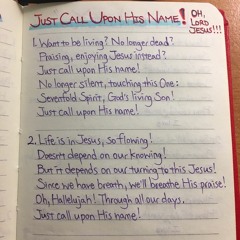 Just Call Upon His Name! Oh, Lord Jesus!!!
1. Want to be living? No longer dead?
Praising, enjoying Jesus instead?
Just call upon His name!
No longer silent, touching this One:
Sevenfold Spirit, God's living Son!
Just call upon His name!
2. Life is in Jesus, so flowing!
Doesn't depend on our knowing!
But it depends on our turning to this Jesus!
Since we have breath, we'll breathe His praise!
Oh, Hallelujah! Through all our days.
Just call upon His name!